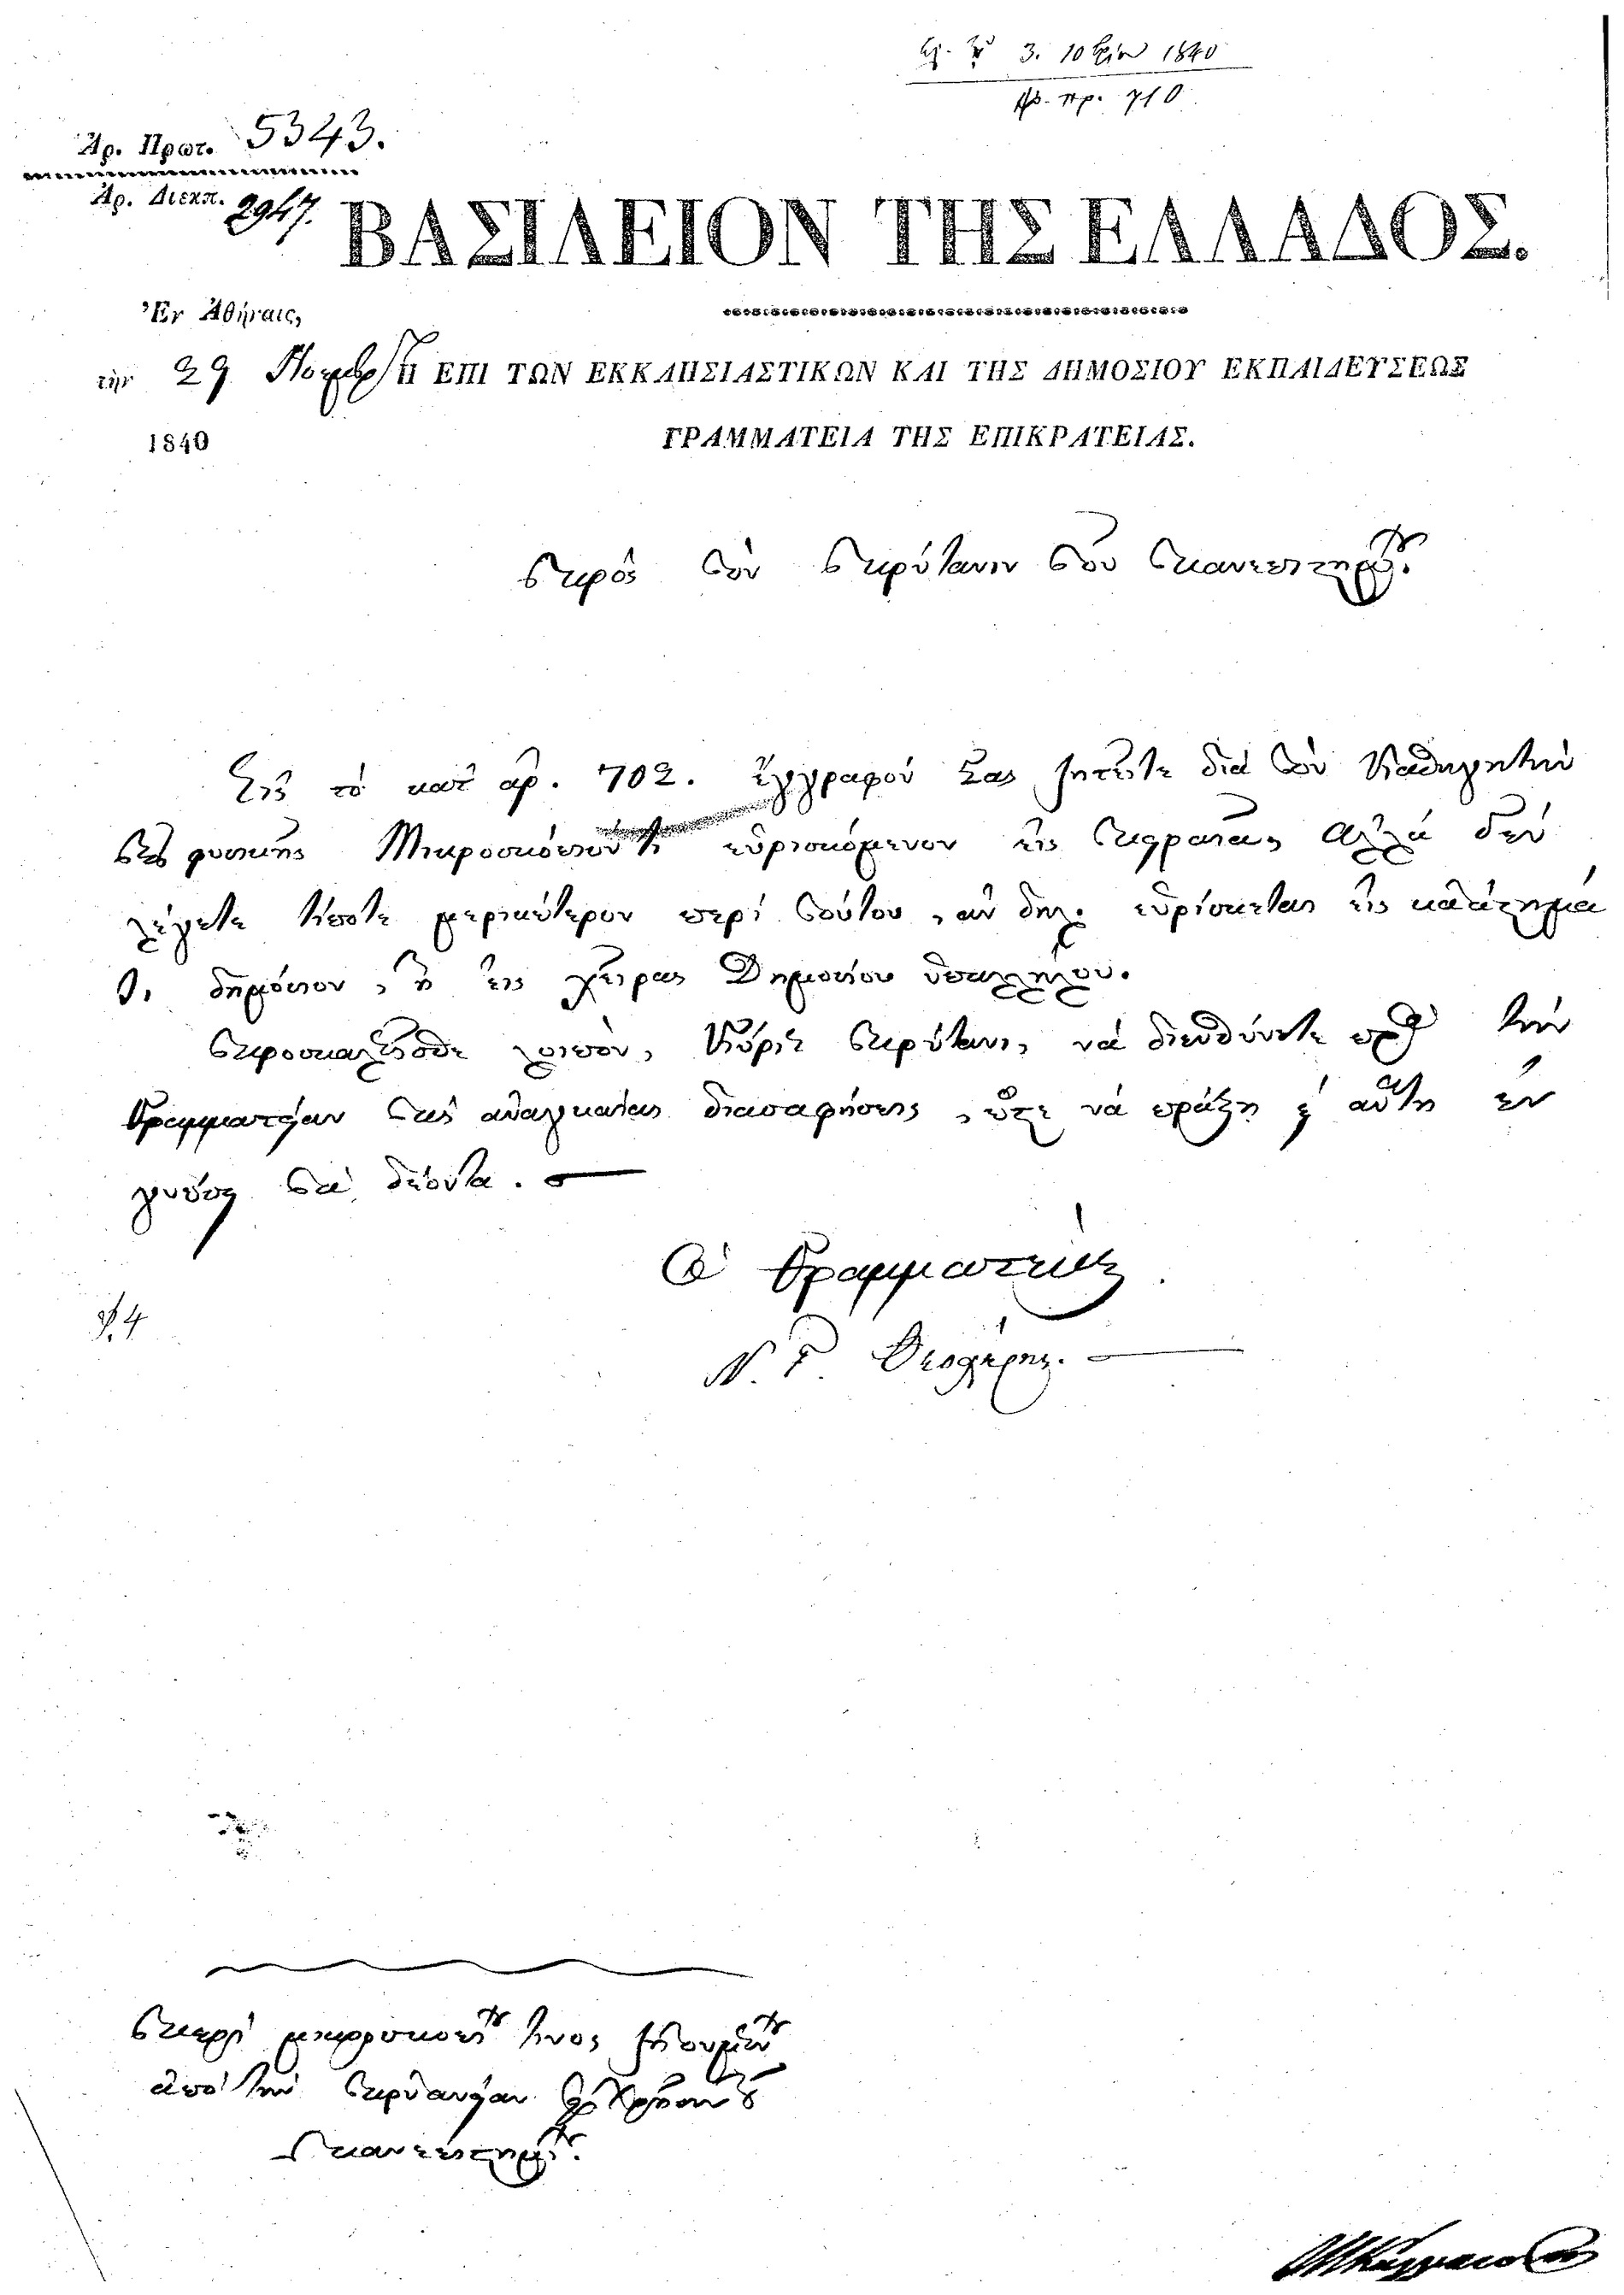 3. 10βρίου 1840
Ἀρ. πρ. 710
Ἀρ. Πρωτ. 5343.
Ἀρ. Διεκπ. 2947.
ΒΑΣΙΛΕΙΟΝ ΤΗΣ ΕΛΛΑΔΟΣ.
Ἐν Ἀθήναις,
τὴν 29 Νοεμβρ/
1840
Η ΕΠΙ ΤΩΝ ΕΚΚΛΗΣΙΑΣΤΙΚΩΝ ΚΑΙ ΤΗΣ ΔΗΜΟΣΙΟΥ ΕΚΠΑΙΔΕΥΣΕΩΣ
ΓΡΑΜΜΑΤΕΙΑ ΤΗΣ ΕΠΙΚΡΑΤΕΙΑΣ.
Πρὸς τὸν Πρύτανιν τοῦ Πανεπιστημίου.
Εἰς τὸ κατ' ἀρ. 702. ἔγγραφόν Σας ζητεῖτε διὰ τὸν Καθηγητὴν
τῆς φυσικῆς Μικροσκόπιόν τι εὑρισκόμενον εἰς Πειραιᾶ, ἀλλὰ δὲν
λέγετε τίποτε μερικώτερον περὶ τούτου, ἂν δηλ. εὑρίσκεται εἰς κατάστημά
τι δημόσιον, ἢ εἰς χεῖρας Δημοσίου ὑπαλλήλου.
Προσκαλεῖσθε λοιπόν, Κύριε Πρύτανι, νὰ διευθύνετε πρὸς τὴν
Γραμματείαν τὰς ἀναγκαίας διασαφήσεις, ὥστε νὰ πράξῃ ἡ αὐτὴ ἐν
γνώσει τὰ δέοντα. —
Ὁ Γραμματεὺς
Ν. Γ. Θεοχάρης. —
Περὶ μικροσκοπίου τινος ζητουμένου
ἀπὸ τὴν Πρυτανείαν πρὸς χρῆσιν τοῦ
Πανεπιστημίου.